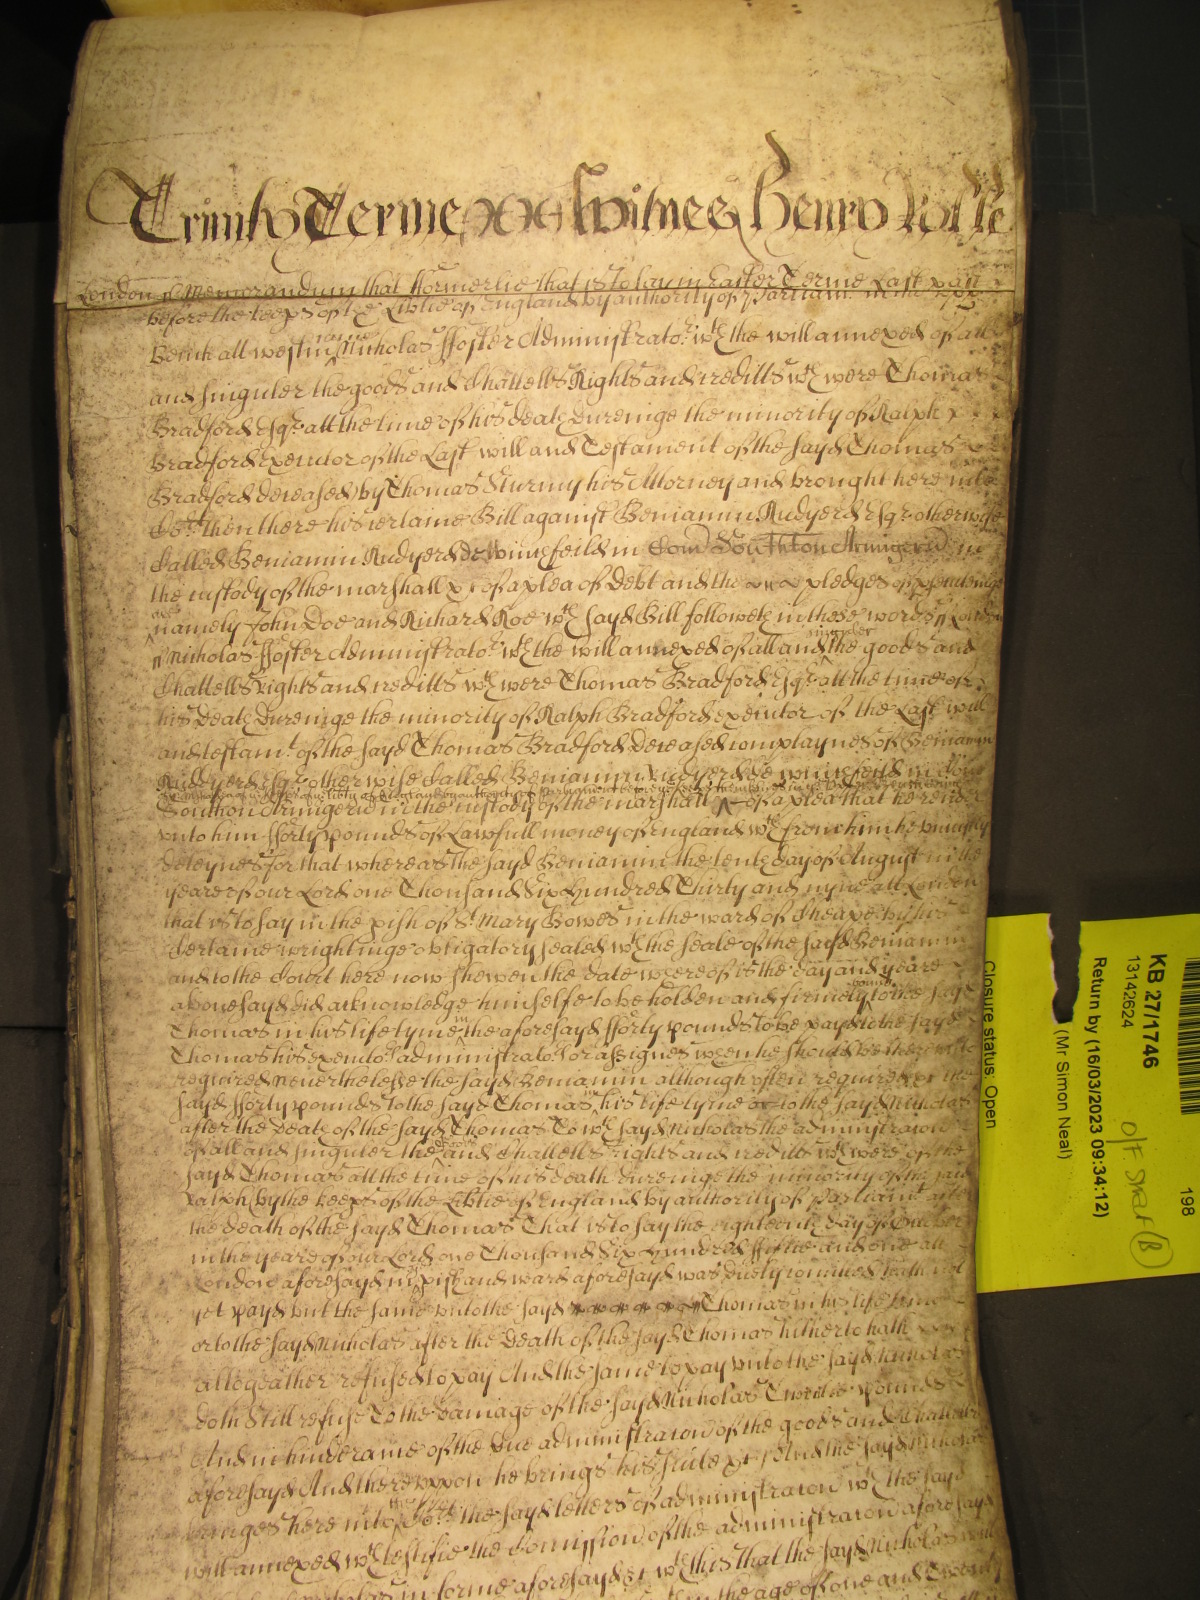 Trinity Terme Witnes Henry Rolle
London ss Memorandum that fformerlie that is to say in Easter Terme Last past
before the keeps of the Libtie of England by authority of Parliam
Bench att westm came Nicholas ffoster Administrator wth the will annexed of all
and singuler the goods and Chattells Rights and creditts wch were Thomas
Bradford Esqr att the time of his death dureinge the minority of Ralph
Bradford executor of the Last will and Testament of the sayd Thomas
Bradford deceased by Thomas Sturmy his Attorney and brought here into
Cort then there his certaine Bill against Beniamin Rudyerd Esqr otherwise
Called Beniamin Rudyerd de Winchfeild in Com Southton Armigerū in
the custody of the marshall of a plea of Debt and the pledges of
are
namely John Doe and Richard Roe wch sayd Bill followeth in these words London
ss Nicholas ffoster Administrator wth the will annexed of all and singuler the goods and
Chattells rights and creditts wch were Thomas Bradford Esqr att the time of
his death dureinge the minority of Ralph Bradford executor of the Last will
and testamt of the sayd Thomas Bradford deceased complaynes of Beniamin
Rudyerd Esqr otherwise Called Beniamin Rudyerd de winchfeild in Com
Southton Armigerū in the custody of the marshall of a plea that he render
vnto him fforty pounds of Lawfull money of England wch from him he uniustly
deteynes for that whereas the sayd Beniamin the tenth day of August in the
yeare of our Lord one Thousand Six Hundred Thirty and nyne att London
that is to say in the pish of St Mary Bowes in the ward of Cheape by his
Certaine wrightinge obligatory sealed wth the seale of the sayd Beniamin
and to the Court here now shewen the date whereof is the day and yeare
abovesayd did acknowledge himselfe to be holden and firmely bound to the sayd
Thomas in his life tyme in the aforesayd fforty pounds to be payd to the sayd
Thomas his executor administrator or assignes when he should be therevnto
required Neuerthelesse the sayd Beniamin although often required the
sayd fforty pounds to the sayd Thomas in his life tyme or to the sayd Nicholas
after the death of the sayd Thomas To wch sayd Nicholas the administracon
of all and singuler the goods and Chattells rights and creditts wch were of the
sayd Thomas att the time of his death dureinge the minority of the said
Ralph by the keeps of the Libtie of England by authority of parliamt after
the death of the sayd Thomas That is to say the eighteenth day of
in the yeare of our Lord one Thousand Six Hundred ffiftie and one att
London aforesayd in ye pish and ward aforesayd was duely comitted hath not
yet payd but the same vnto the sayd Thomas in his life time
or to the sayd Nicholas after the death of the sayd Thomas hitherto hath
altogeather refused to pay And the same to pay vnto the sayd Nicholas
doth still refuse To the damage of the sayd Nicholas Twentie pounds
And in hinderance of the due administracon of the goods and Chattells
aforesayd And therevppon he brings his suite &c And the sayd Nicholas
bringes here into the sayd Cort the sayd letters of administracon wth the sayd
will annexed wch testifie the Comission of the administracon aforesayd
in forme aforesayd &c wth this that the sayd Nicholas will
the age of one and twenty
198
KB 27/1746
13142624
O/F Shelf B
Return by (16/03/2023 09:34:12)
(Mr Simon Neal)
Closure status: Open